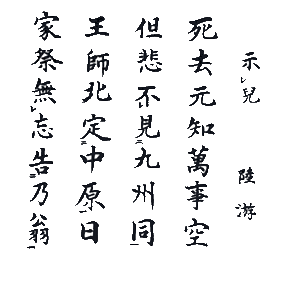 示レ兒
陸游
死去元知萬事空
但悲不レ見二九州同一
王師北定中原日
家祭無レ忘告二乃翁一